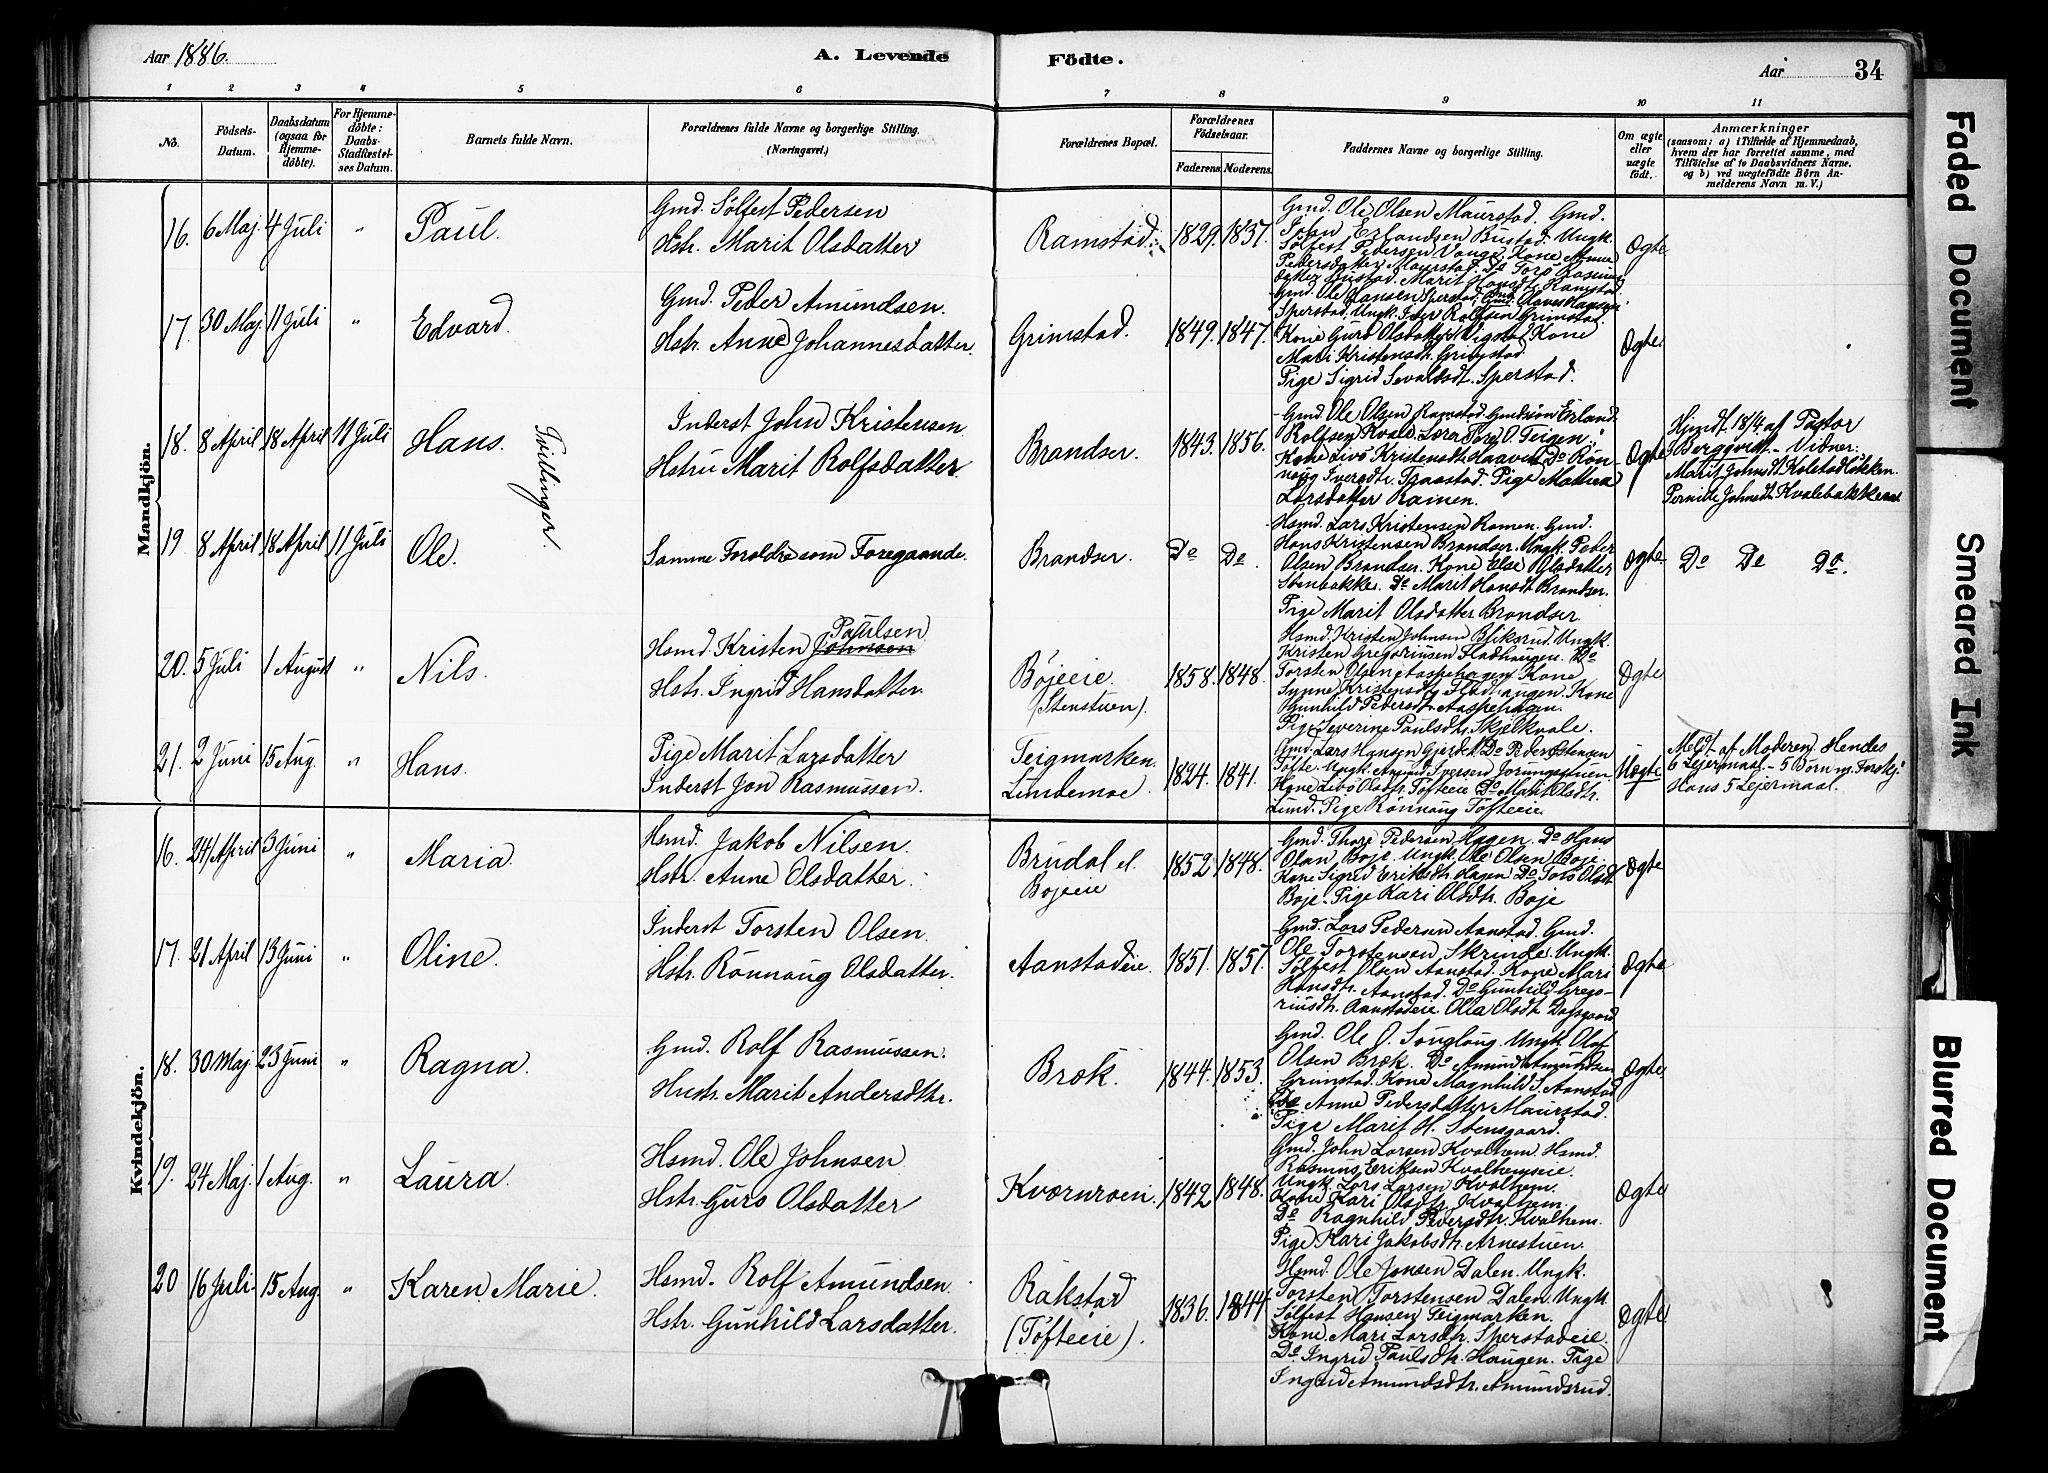 Aar 1886.
A. Levende Födte.
Aar 34
1 2 3 4 5 6 7 8 9 10 11
No.
Födsels-
Datum.
Daabsdatum
(ogsaa for
Hjemme-
döbte).
For Hjemme-
döbte:
Daabs-
Stadfæstel-
ses Datum.
Barnets fulde Navn.
Forældrenes fulde Navne og borgerlige Stilling.
(Næringsvei.)
Forældrenes Bopæl.
Forældrenes
Födselsaar.
Faderens. Moderens.
Faddernes Navne og borgerlige Stilling.
Om ægte
eller
uægte
födt.
Anmærkninger
(saasom: a) i Tilfælde af Hjemmedaab,
hvem der har forrettet samme, med
Tilföielse af to Daabsvidners Navne,
og b) ved uægtefödte Börn An-
melderens Navn m. V.)
Mandkjön.
16. 6 Maj. 4 Juli " Paul.
Gmd. Sølfest Pedersen
Hstr. Marit Olsdatter
Ramstad. 1829. 1837.
Gmd. Ole Olsen Maurstad. Gmd.
John Erlandsen Bustad. Ungk.
Sølfest Pedersen Vange. Kone Anne
Pedersdatter Maurstad. Do Toro Rasmus
datter Bustad. Marit Hansdtr Ramstad
Ægte
17. 30 Maj. 11 Juli " Edvard.
Gmd. Peder Amundsen.
Hstr. Anne Johannesdatter.
Grimstad. 1849. 1847.
Gmd. Ole Hansen Sperstad,
Sperstad, Ungk. Iver Rolfsen Grimstad.
Kone Guro Olsdatter Vigstad, Kone
Mari Kristensdtr.
Pige Sigrid Sevaldsdt. Sperstad.
Ægte
18. 8 April 18 April 11 Juli Hans.
Tvillinger.
Inderst John Kristensen
Hstru Marit Rolfsdatter.
Brandser. 1843. 1856.
Gmd. Ole Olsen Ramstad. Gmdsøn Erland
Rolfsen Kvale. Lærer Tore O. Teigen.
Kone Livö Kristensdtr Haaven. Do Røn-
naug Iversdtr. Traastad. Pige Mathea
Larsdatter Ramen.
Ægte
Hjmdt. 18/4 af Pastor
Bergqvist. - Vidner:
Marit Johnsdt. Kolstadløkken.
Pernille Johnsdt Kvalebakken
19 8 April 18 April 11 Juli Ole.
Samme Forældre som Foregaaende.
Brandser. Do Do
Hsmd. Lars Kristensen Ramen. Gmd.
Hans Kristensen Brandser. Ungk. Peder
Olsen Brandser. Kone Else Olsdatter
Stenbakke. Do Marit Hansdt Brandser.
Pige Marit Olsdatter Brandser
Ægte Do Do Do.
20. 5 Juli 1 August " Nils.
Hsmd. Kristen Johnsen Paulsen
Hstr. Ingrid Hansdatter.
Böjeeie.
(Stenstuen).
1858. 1848.
Hsmd. Kristen Johnsen Bliksrud. Ungk.
Kristen Gregoriusen Fladhaugen. Do
Torsten Olsen Kone
Synne Kristensdt. Fladhaugen. Kone
Gunhild Pedersdt. Aaspehagen.
Pige Severine Paulsdtr. Skjelkvale.
Ægte
21. 2 Juni 15 Aug. " Hans.
Pige Marit Larsdatter
Inderst Jon Rasmussen.
Teigmarken.
Lindemoe
1824. 1841.
Gmd. Lars Hansen Gjerdet. Do Peder Estensen
Tøfte. Ungk. Amund Iversen
Kone Livö Olsdtr. Töfteeie Do Marit Olsdtr.
Lund. Pige Rønnaug Töfteeie
Uægte
Meldt af Moderen. Hendes
6 Lejermaal. - 5 Børn m. Forskj.
Hans 5 Lejermaal.
Kvindekjön.
16. 24 April 3 Juni " Maria.
Hsmd. Jakob Nilsen.
Hstr. Anne Olsdatter.
Brudal el.
Bøjeeie
1852 1848.
Gmd. Thore Pedersen Hagen. Do Hans
Olsen Boje. Ungk. Ole Olsen Boje.
Kone Sigrid Eriksdtr. Hagen Do Toro Olsdt.
Boje. Pige Kari Olsdtr. Boje
Ægte
17. 21 April 13 Juni " Oline.
Inderst Torsten Olsen.
Hstr. Rönnaug Olsdatter.
Aanstadeie. 1851. 1857.
Gmd. Lars Pedersen Aanstad. Gmd.
Ole Torstensen Skrinde. Ungk.
Sølfest Olsen Aanstad. Kone Mari
Hansdtr. Aanstad. Do Gunhild Grego-
riusdtr. Aanstadeie. Olea Olsdt. Dalsgaard
Ægte
18. 30 Maj. 23 Juni " Ragna.
Gmd. Rolf Rasmussen.
Hustr. Marit Andersdtr.
Bræk. 1844. 1853.
Gmd. Ole J. Songlaug. Ungk. Olaf
Olsen Bræk. Do Amund Amundsen
Grimstad. Kone Magnhild J. Aanstad
Do Anne Pedersdatter Maurstad.
Pige Marit H. Stensgaard.
Ægte
19. 24 Maj. 1 Aug. " Laura.
Hsmd. Ole Johnsen
Hstr. Guro Olsdatter
Kværnroen. 1842 1848.
Gmd. John Larsen Kvalhem. Hsmd.
Rasmus Eriksen Kvalhemseie.
Ungk. Lars Larsen Kvalhem.
Kone Kari Olsdtr. Kvalhem.
Do Ragnhild Pedersdtr. Kvalhem.
Pige Kari Jakobsdtr. Arnestuen.
Ægte
20 16 Juli. 15 Aug. " Karen Marie.
Hsmd. Rolf Amundsen
Hstr. Gunhild Larsdatter.
Rakstad
(Töfteeie).
1836. 1844.
Hsmd. Ole Jonsen Dalen. Ungk.
Torsten Torstensen Dalen. Ungk
Sølfest Hansen Teigmarken.
Kone Mari Larsdtr. Sperstadeie.
Do Ingrid Paulsdtr. Haugen. Pige
Ingrid Amundsdtr. Amundsrud.
Ægte
Faded Document
Smeared Ink
Blurred Document